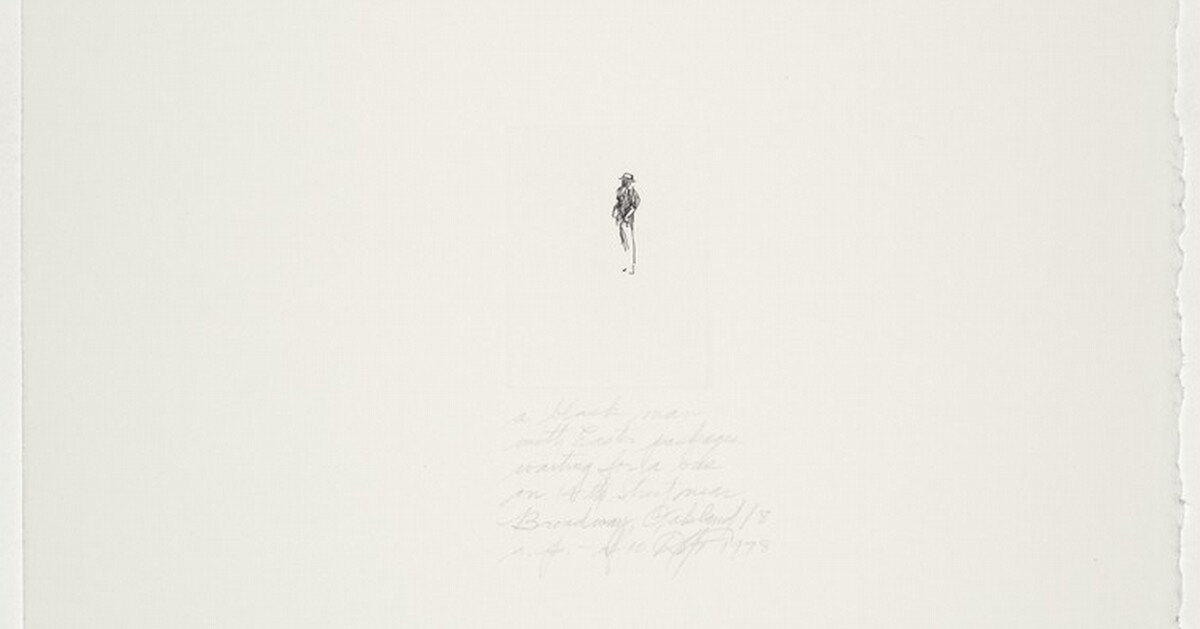 a black man
with Easter package
waiting for a bus
on street near
Broadway Oakland / 8
1978